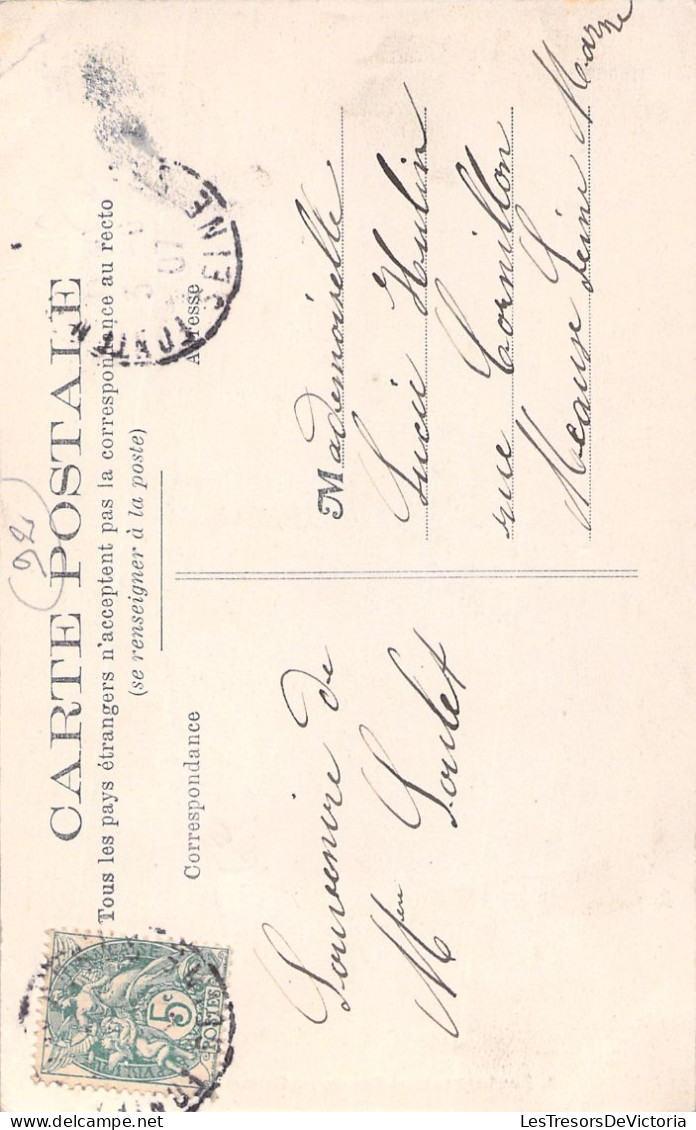 CARTE POSTALE
Tous les pays étrangers n'acceptent pas la correspondance au recto
(se renseigner à la poste)
Correspondance
Adresse
Souvenire de
Men Goulet
Mademoiselle
Lucie Hulin
rue Cornillon
Meaux Seine Marne
(92)
SEINE
07
5c
POSTES
LesTresorsDeVictoria
delcampe.net